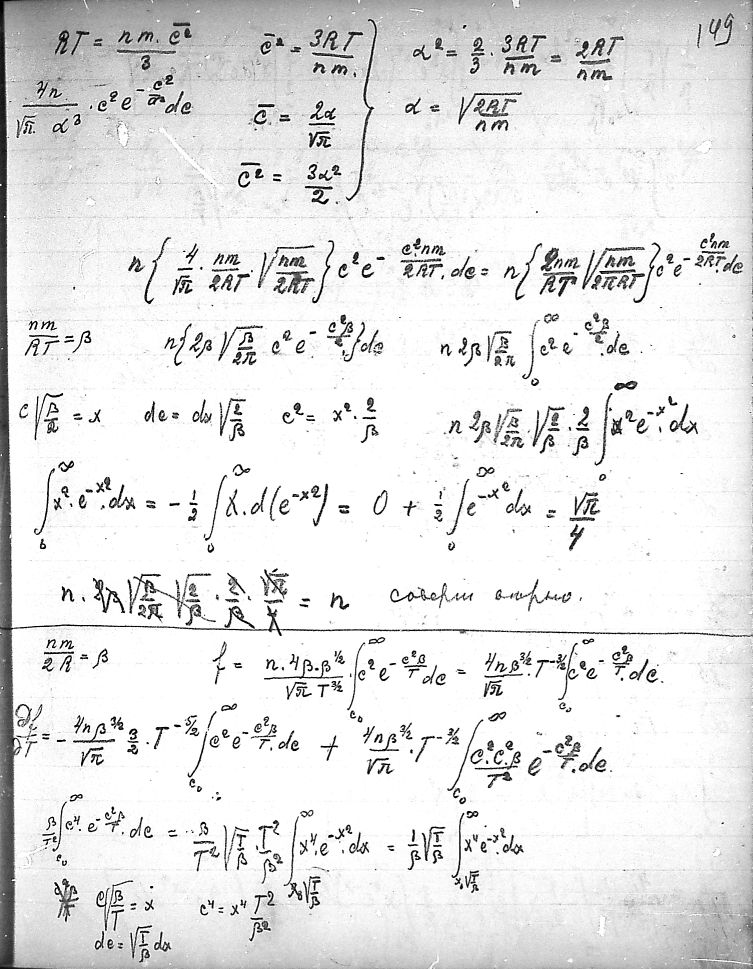 149
RT = \frac{nm. \overline{c^2}}{3} \quad \overline{c}^2 = \frac{3RT}{nm.} \quad α^2 = \frac{2}{3} \cdot \frac{3RT}{nm} = \frac{2RT}{nm}
\frac{4n}{\sqrt{π} α^3} \cdot c^2 e^{-\frac{c^2}{α^2}} dc \quad \overline{c} = \frac{2α}{\sqrt{π}} \quad α = \sqrt{\frac{2RT}{nm}}
\overline{c^2} = \frac{3α^2}{2.}
n \{ \frac{4}{\sqrt{π}} \cdot \frac{nm}{2RT} \cdot \sqrt{\frac{nm}{2RT}} \} c^2 e^{-\frac{c^2 nm}{2RT}} . dc = n \{ \frac{2nm}{RT} \sqrt{\frac{nm}{2πRT}} \} c^2 e^{-\frac{c^2 nm}{2RT}} . dc
\frac{nm}{RT} = β \quad n \{ 2β \sqrt{\frac{β}{2π}} c^2 e^{-\frac{c^2 β}{2}} . \} dc \quad n 2β \sqrt{\frac{β}{2π}} \int_0^∞ c^2 e^{-\frac{c^2 β}{2}} . dc
c \sqrt{\frac{β}{2}} = x \quad dc = dx \sqrt{\frac{2}{β}} \quad c^2 = x^2 \cdot \frac{2}{β} \quad n 2β \sqrt{\frac{β}{2π}} \cdot \sqrt{\frac{2}{β}} \cdot \frac{2}{β} \int_0^∞ x^2 e^{-x^2} . dx
\int_0^∞ x^2 . e^{-x^2} . dx = -\frac{1}{2} \int_0^∞ x . d(e^{-x^2}) = 0 + \frac{1}{2} \int_0^∞ e^{-x^2} dx = \frac{\sqrt{π}}{4}
n. 2β \sqrt{\frac{β}{2π}} \sqrt{\frac{2}{β}} \cdot \frac{2}{β} \cdot \frac{\sqrt{π}}{4} = n
\frac{nm}{2R} = β \quad f = \frac{n.4β.β^{1/2}}{\sqrt{π} T^{3/2}} \int_{c_0}^∞ c^2 e^{-\frac{c^2 β}{T}} dc = \frac{4nβ^{3/2}}{\sqrt{π}} . T^{-3/2} \int_{c_0}^∞ c^2 e^{-\frac{c^2 β}{T}} . dc.
\frac{∂f}{∂T} = -\frac{4nβ^{3/2}}{\sqrt{π}} \frac{3}{2} . T^{-5/2} \int_{c_0}^∞ c^2 e^{-\frac{c^2 β}{T}} . dc + \frac{4nβ^{3/2}}{\sqrt{π}} . T^{-3/2} \int_{c_0}^∞ \frac{c^2 . c^2 . β}{T^2} e^{-\frac{c^2 β}{T}} . dc.
\frac{β}{T^2} \int_{c_0}^∞ c^4 . e^{-\frac{c^2 β}{T}} . dc = \frac{β}{T^2} \sqrt{\frac{T}{β}} \cdot \frac{T^2}{β^2} \int_{x_0 \sqrt{\frac{T}{β}}}^∞ x^4 . e^{-x^2} . dx = \frac{1}{β} \sqrt{\frac{T}{β}} \int_{x_0 \sqrt{\frac{T}{β}}}^∞ x^4 e^{-x^2} . dx
c \sqrt{\frac{β}{T}} = x \quad c^4 = x^4 \frac{T^2}{β^2}
dc = \sqrt{\frac{T}{β}} dx